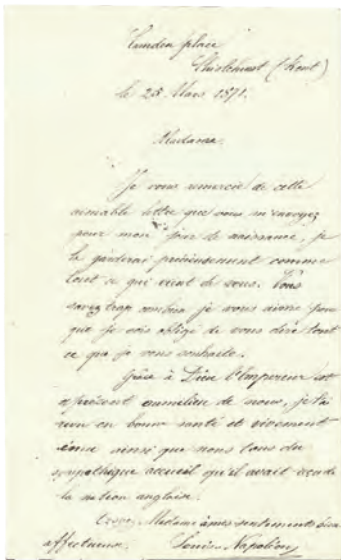 Camden place
Chislehurst (Kent)
le 28 Mars 1871.
Madame,
Je vous remercie de cette
aimable lettre que vous m'envoyez
pour mon jour de naissance, je
la garderai précieusement comme
tout ce qui vient de vous. Vous
savez trop combien je vous aime pour
que je sois obligé de vous dire tout
ce que je vous souhaite.
Grâce à Dieu l'Empereur est
aprésent aumilieu de nous, je l'ai
revu en bonne santé et vivement
ému ainsi que nous tous du
sympathique accueil qu'il avait
de la nation anglaise.
Madame à mes sentiments bien
affectueux. Louis Napoléon